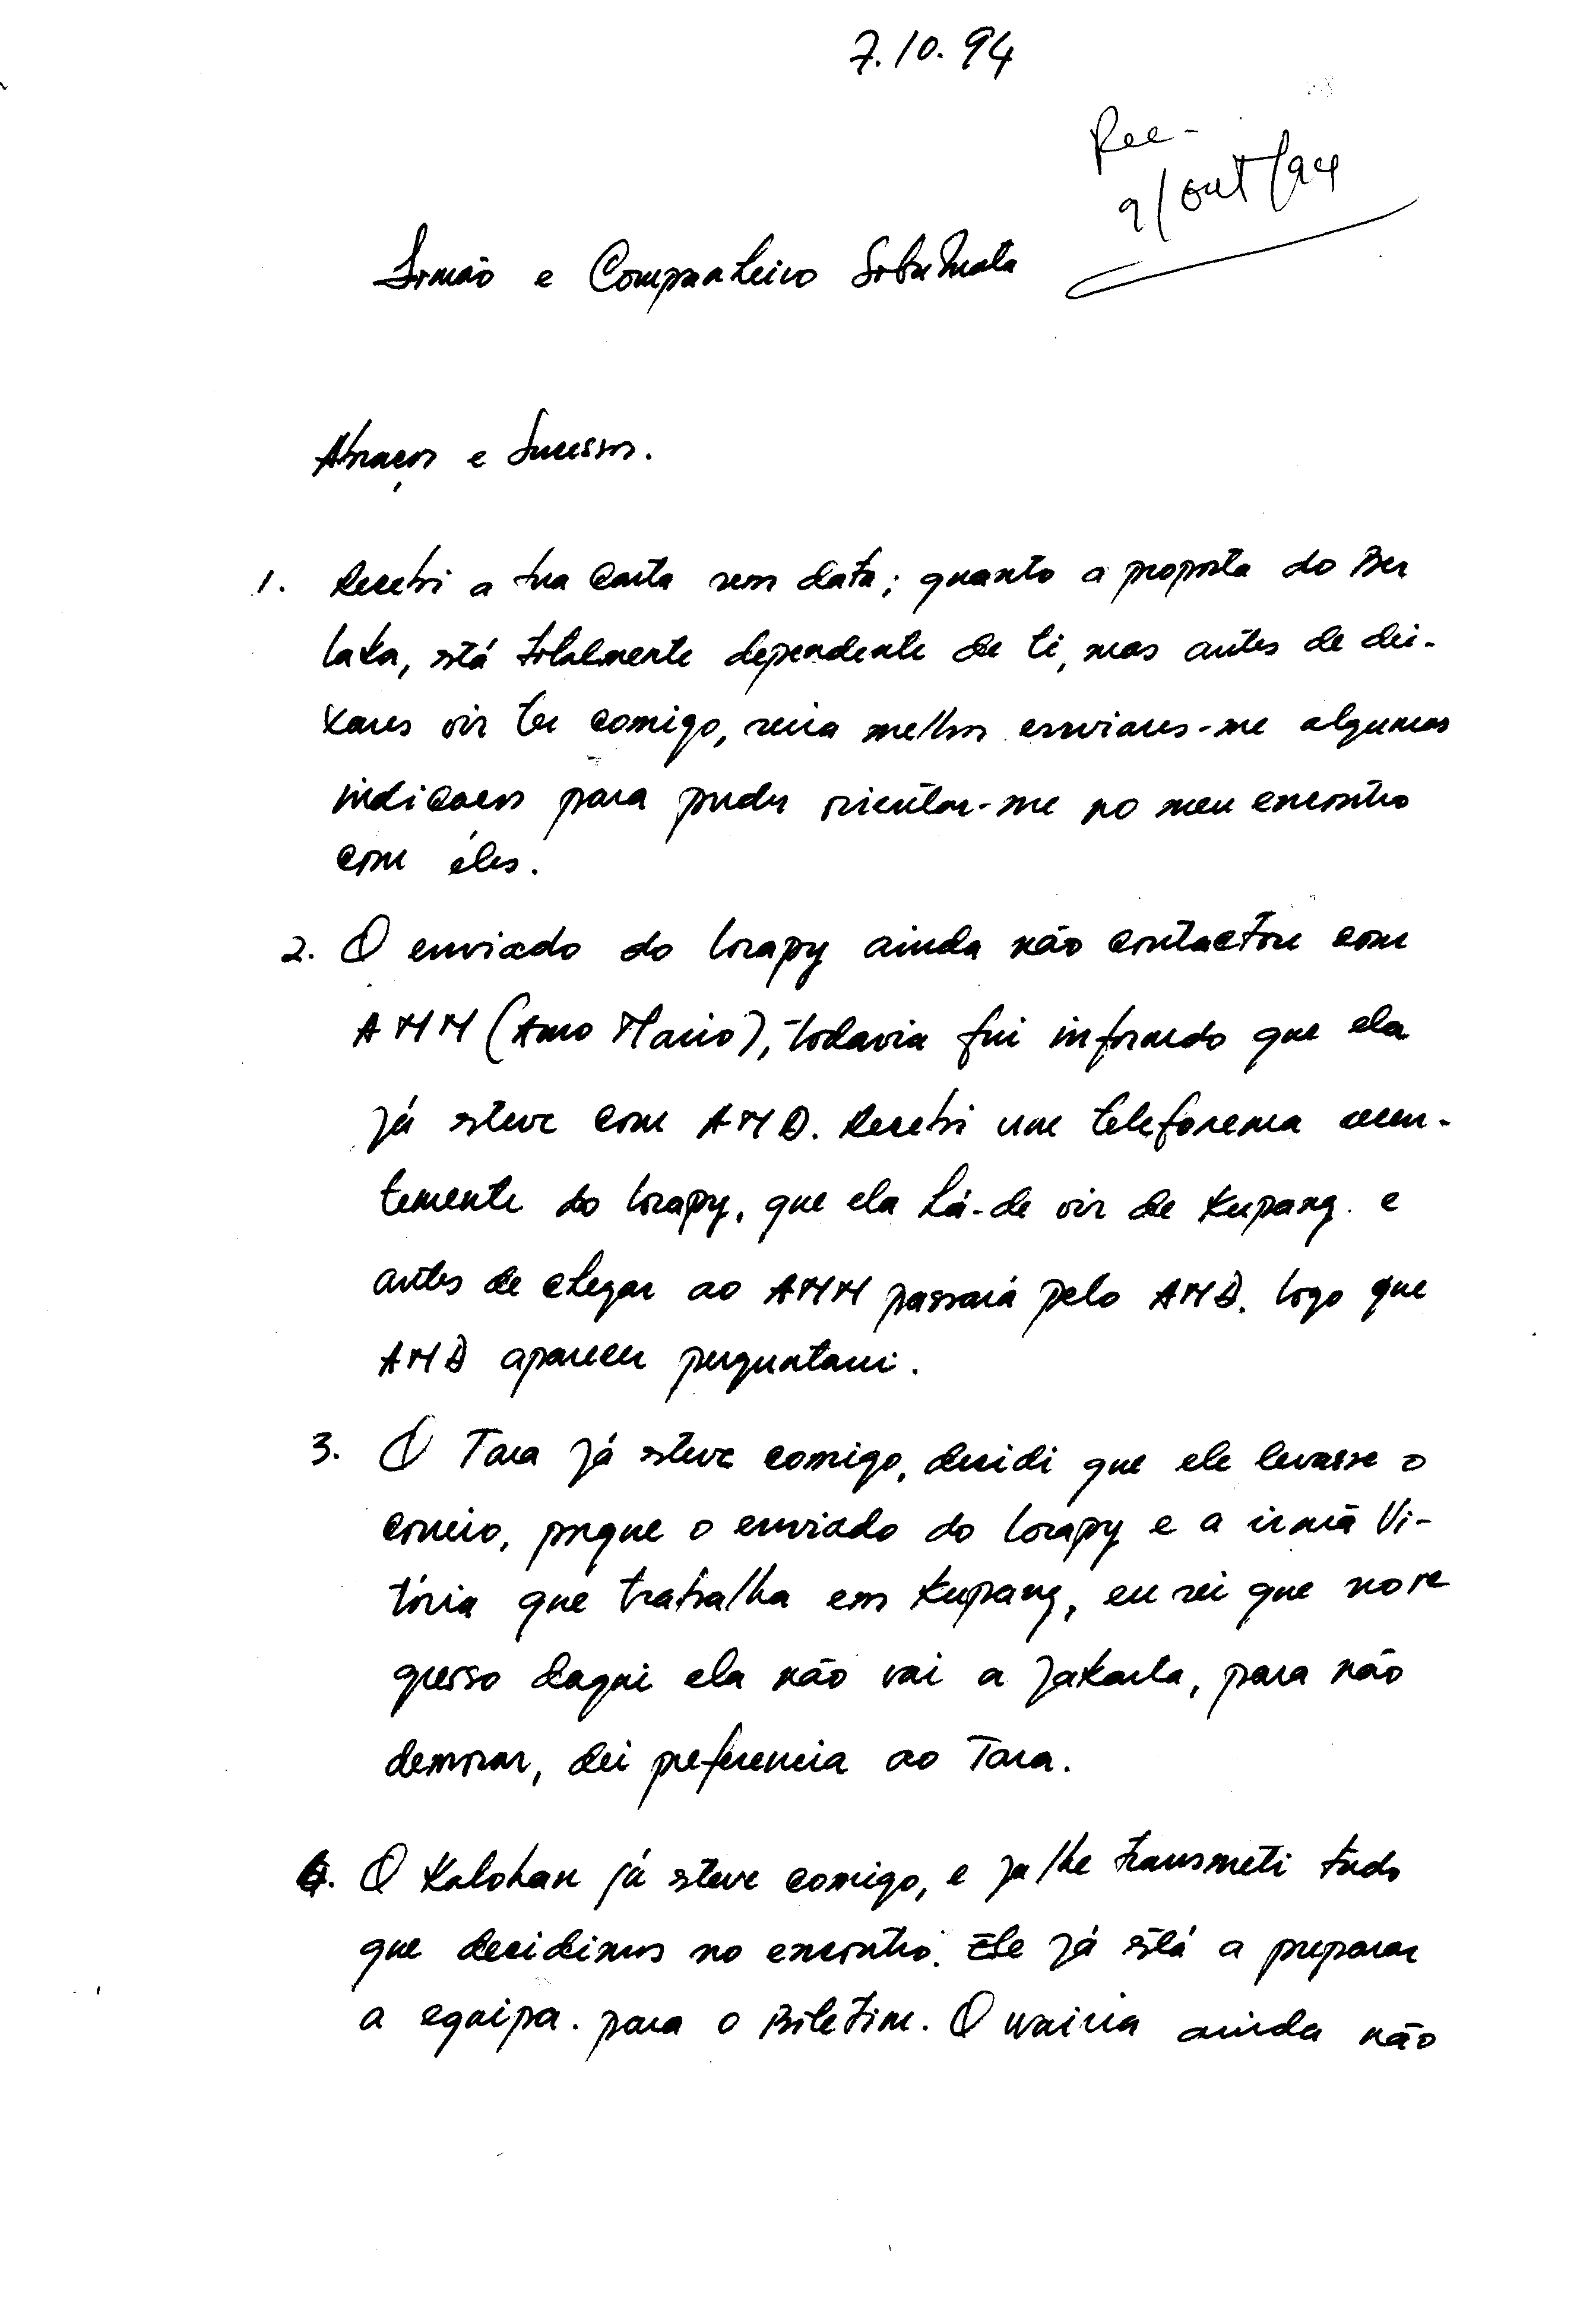 7.10.94
Rec-
9/out/94
Irmão e Companheiro Sabalae
Abraços e Sucessos.
1. Recebi a tua carta sem data; quanto a proposta do Ber
laka, stá totalmente dependente de ti, mas antes de dei-
xares vir ter comigo, seria melhor enviares-me algumas
indicaçoes para puder orientar-me no meu encontro
com êles.
2. O enviado do Lorapy ainda não contactou com
AMM (Amo Mario), todavia fui informado que ela
já steve com AMD. Recebi um telefonema recen-
temente do Lorapy, que ela há-de vir de Kupang. e
antes de chegar ao AMM passará pelo AMD. Logo que
AMD aparecer perguntarei.
3. O Tara já steve comigo, decidi que ele levasse o
correio, porque o enviado do Lorapy e a irmã Vi-
tória que trabalha em Kupang, eu sei que no re
gresso daqui ela não vai a Jakarta, para não
demorar, dei preferencia ao Tara.
4. O Kalohan já steve comigo, e ja lhe transmeti tudo
que decidimos no encontro. Ele já stá a preparar
a equipa. para o Boletim. O Wairia ainda não